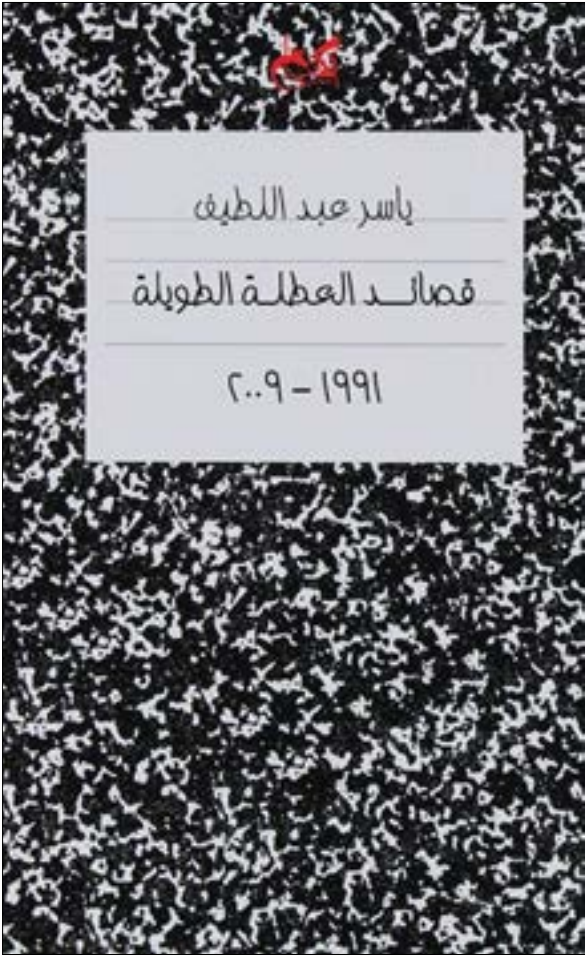 ياسر عبد اللطيف
قصائد العطلة الطويلة
١٩٩١ – ٢٠٠٩